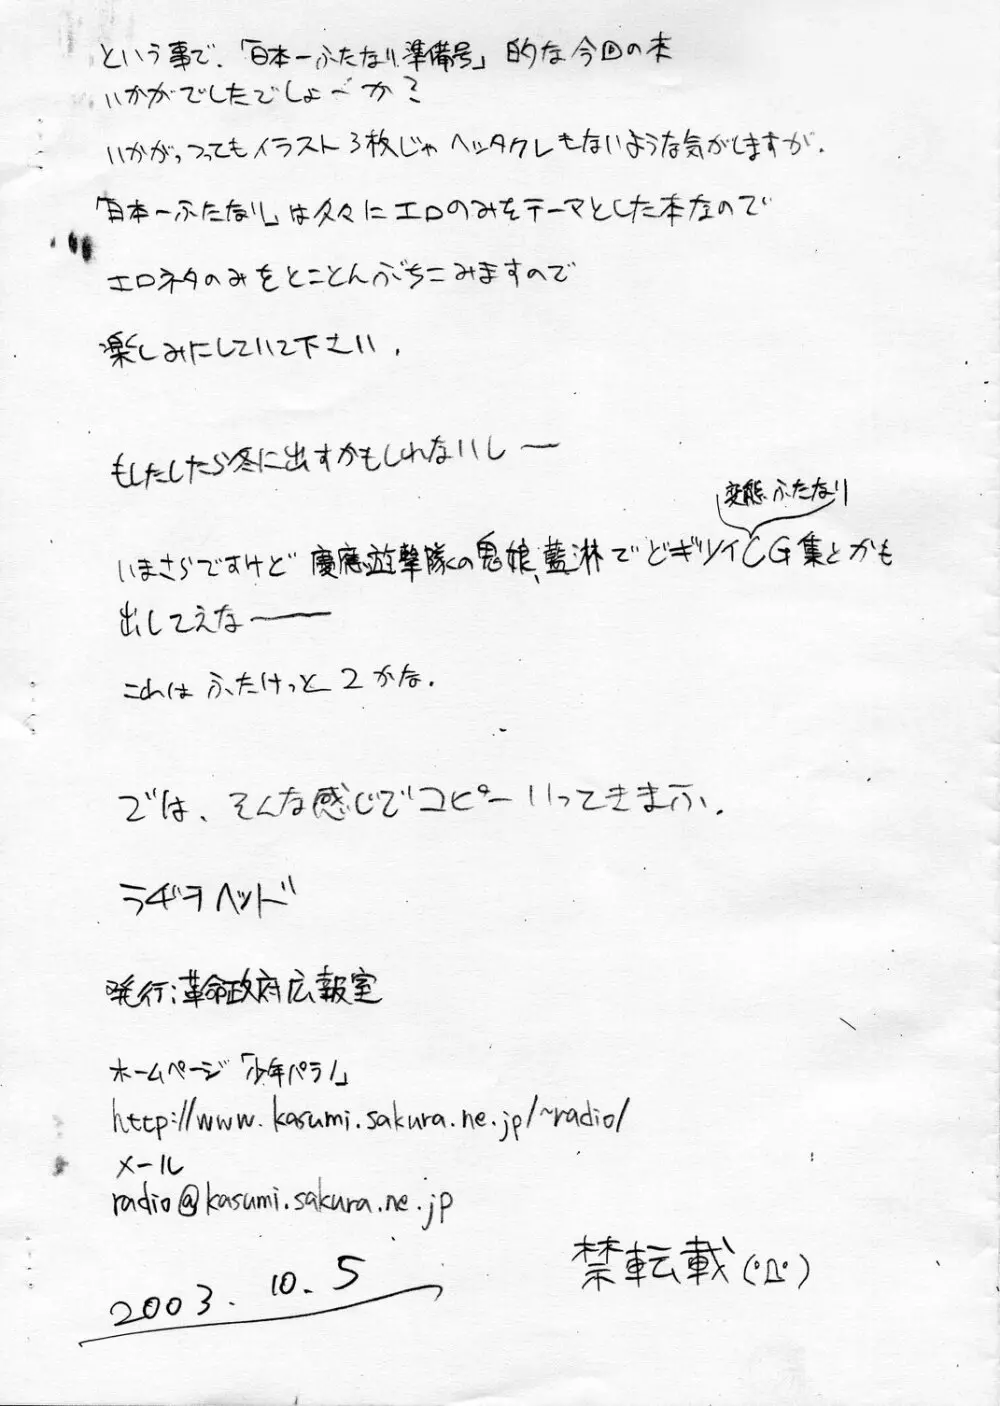 という事で、「日本一ふたなり準備号」的な今回の本
いかがでしたでしょーか?
いかがっつってもイラスト3枚じゃヘッタクレもないような気がしますが.
「日本一ふたなり」は久々にエロのみをテーマとした本なので
エロネタのみをとことんぶちこみますので
楽しみにしていて下さい.
もしたしたら冬に出すかもしれないしー
変態ふたなり
いまさらですけど 慶應遊撃隊の鬼娘、藍淋でどギツイCG集とかも
出してえなー
これは ふたけっと2かな.
では、そんな感じでコピーいってきまふ.
ラヂヲヘッド
発行:革命政府広報室
ホームページ「少年パラノ」
http://www.kasumi.sakura.ne.jp/~radio/
メール
radio@kasumi.sakura.ne.jp
2003.10.5
禁転載(゚Д゚)